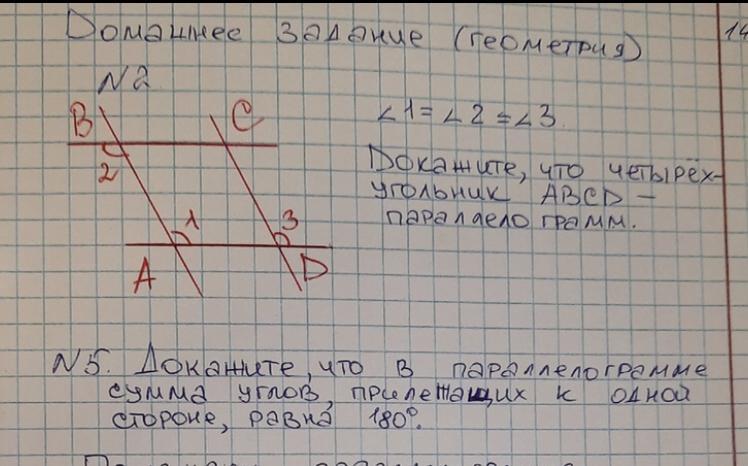 Домашнее задание (геометрия)
14
N2
B
C
∠1=∠2=∠3.
2
Докажите, что четырёх-
угольник ABCD –
параллелограмм.
1
3
A
D
N5. Докажите, что в параллелограмме
сумма углов, прилежащих к одной
стороне, равна 180°.